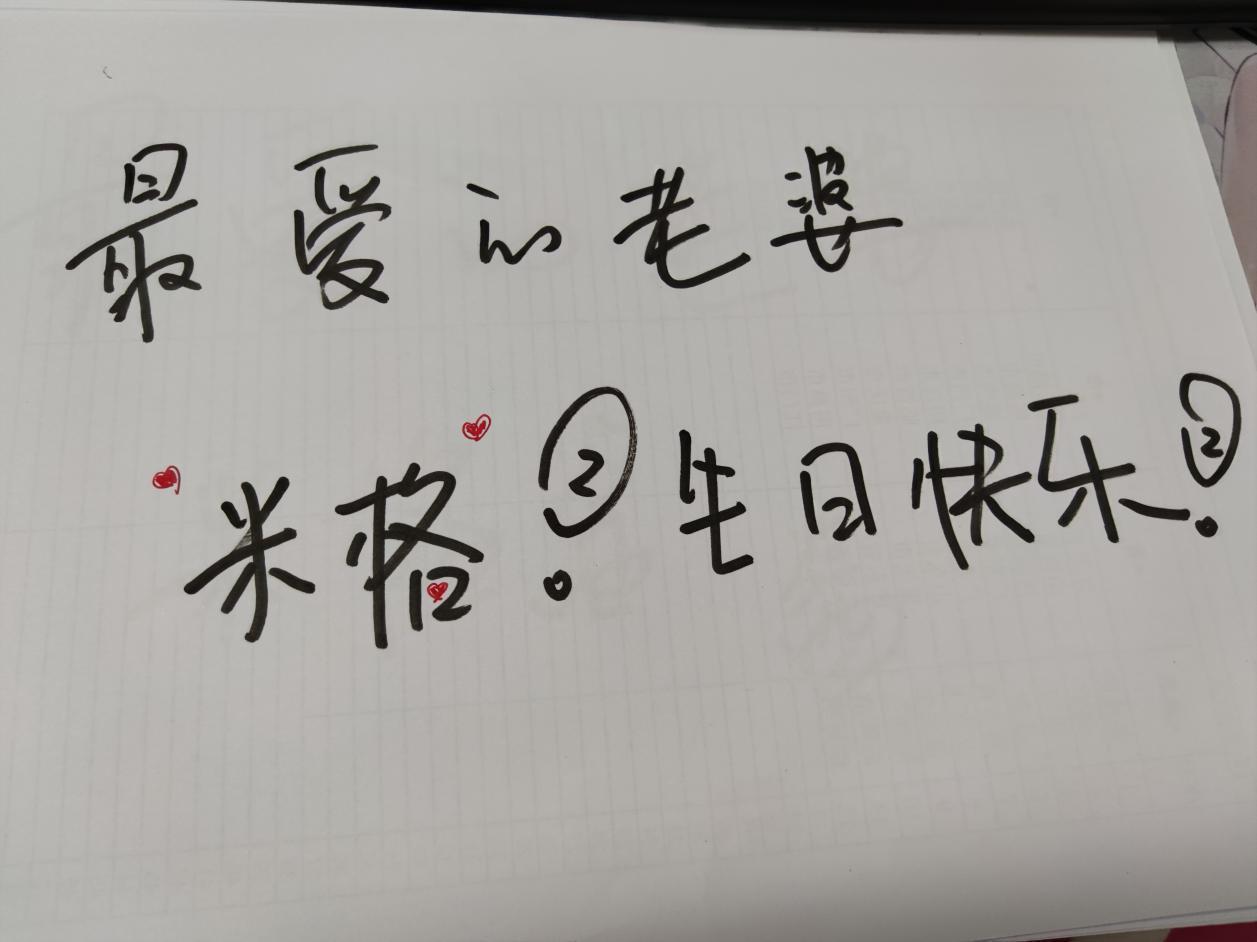 最爱的老婆
米格!生日快乐!